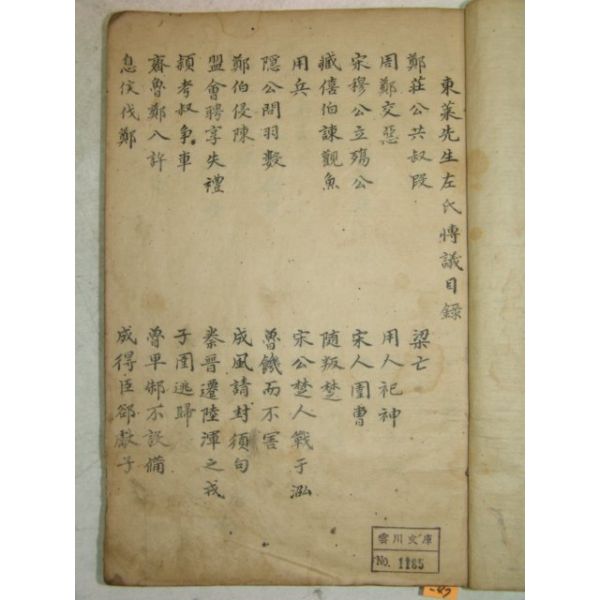 東萊先生左氏博議目録
鄭莊公共叔段
周鄭交惡
宋穆公立殤公
臧僖伯諫觀魚
用兵
隠公問羽數
鄭伯侵陳
盟會聘享失禮
頴考叔争車
齊魯鄭入許
息侯伐鄭
梁亡
用人祀神
宋人圍曹
隨叛楚
宋公楚人戰于泓
魯饑而不害
成風請封須句
秦晋遷陸渾之戎
子圉逃歸
魯卑邾不設備
成得臣郤獻子
雲川文庫
No. 1185